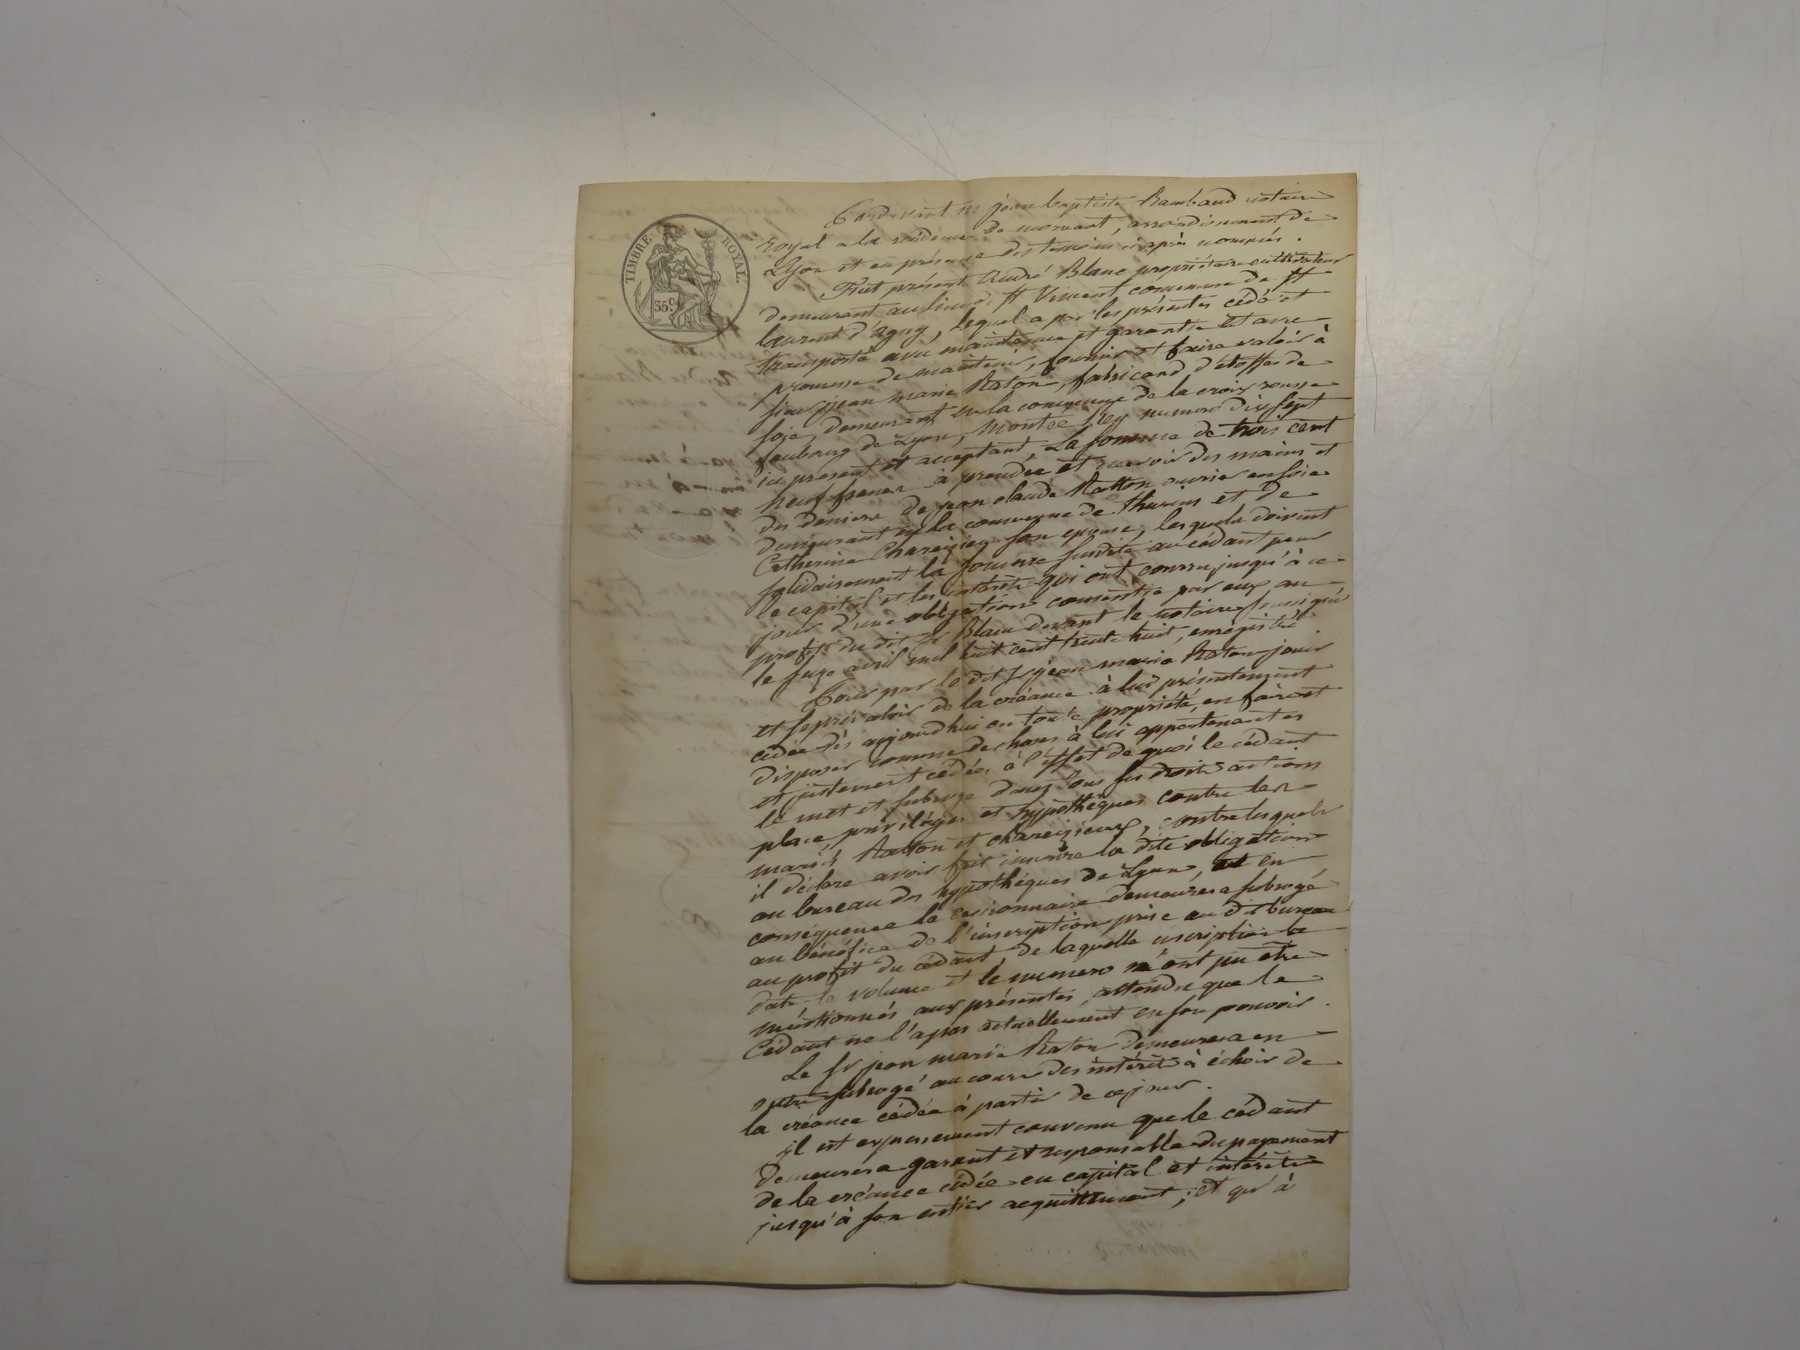 TIMBRE ROYAL.
35 c.
Pardevant me jean baptiste Rambaud notaire
royal a la résidence de mornant, arrondissement de
Lyon et en présence des temoins ci après nommés.
Fut présent André Blanc propriétaire cultivateur
demeurant au lieu de st Vincent commune de st
laurent d'agny, lequel a par les présentes cédé et
transporté avec maintenue et garantie et avec
promesse de maintenir, fournir et faire valoir à
sieur jean marie Raton, fabricand d'étoffes de
soie, demeurant en la commune de la croix rousse
faubourg de Lyon, montée rey numero dix sept
ici présent et acceptant, La somme de trois cent
neuf francs à prendre et recevoir des mains et
des deniers de jean claude Ratton ouvrier en soie
demeurant en la commune de thurins et de
Catherine Chareyzieu son epouse, lesquels doivent
solidairement la somme susdite au cédant pour
le capital et les intérêts qui ont couru jusqu'à ce
jour d'une obligation consentie par eux au
profit du dit sr Blanc devant le notaire soussigné
le seize avril mil huit cent trente huit, enregistré.
Pour par le dit sr jean marie Raton jouir
et se prévaloir de la créance à lui présentement
cédée dès aujourd'hui en toute propriété, en faire et
disposer comme de choses à lui appartenantes
et justement cédées, à l'effet de quoi le cédant
le met et subroge dans tous ses droits actions
place, privilèges et hypothèques contre les
mariés Ratton et chareyzieux, contre lesquels
il déclare avoir fait inscrire la dite obligation
au bureau des hypothèques de Lyon, et en
conséquence le cessionnaire demeurera subrogé
au bénéfice de l'inscription prise au dit bureau
au profit du cédant, de laquelle inscription la
date le volume et le numero n'ont pu etre
mentionnés aux présentes, attendu que le
Cédant ne l'a pas actuellement en son pouvoir.
Le sr jean marie Raton demeurera en
outre subrogé au cours des intérêts à échoir de
la créance cédée à partir de ce jour.
il est expressement convenu que le cédant
demeurera garant et responsable du payement
de la créance cédée en capital et intérêts
jusqu'à son entier acquittement; et qu'à